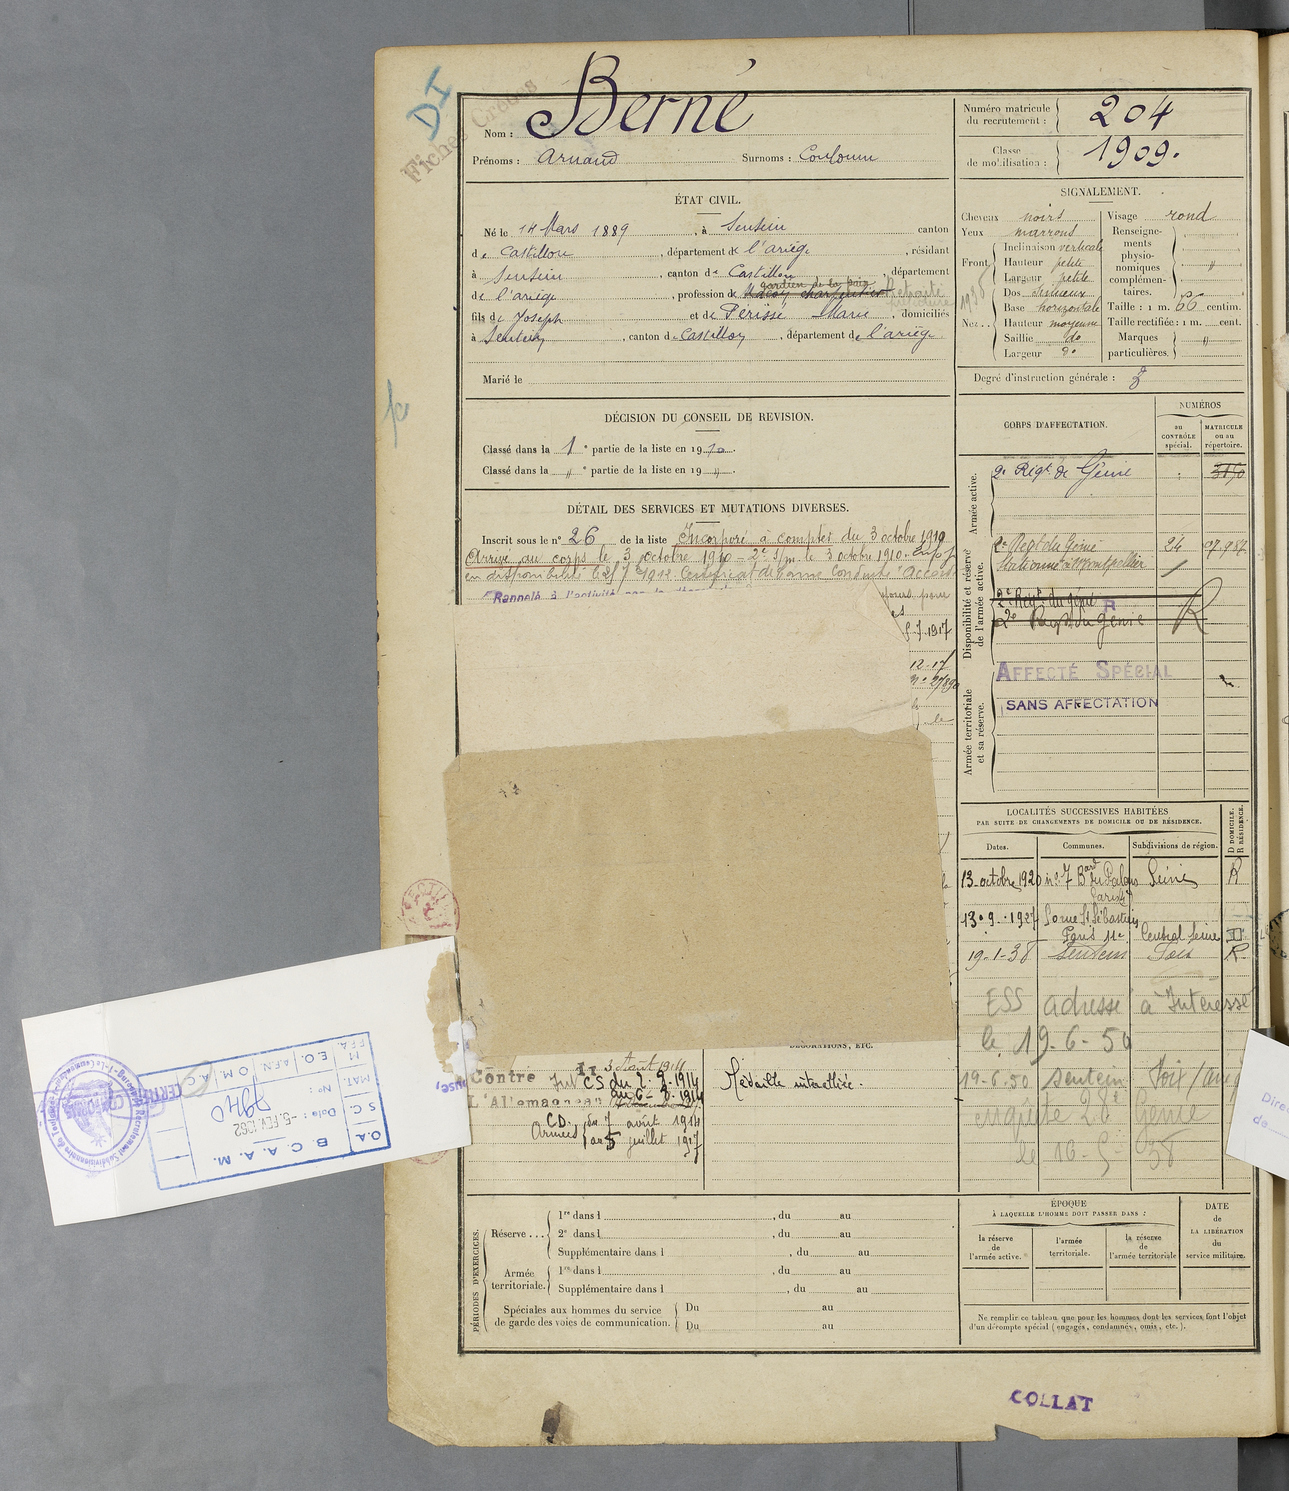 DI
Fiches Créées
Nom : Berné
Prénoms : Arnaud Surnoms : Couloum
Numéro matricule du recrutement : 204
Classe de mobilisation : 1909.
ÉTAT CIVIL.
Né le 14 Mars 1889, à Sentein canton
de Castillon, département de l'ariège, résidant
à Sentein, canton de Castillon, département
gardien de la paix
de l'ariège, profession de charpentier Retraité
fils de Joseph et de Périssé Marie, domiciliés
à Sentein, canton de Castillon, département de l'ariège.
Marié le
SIGNALEMENT.
Cheveux noirs
Yeux marrons
Front. Inclinaison verticale
Hauteur petite
Largeur petite
Nez.. Dos sinueux
Base horizontale
Hauteur moyenne
Saillie do
Largeur do
Visage rond
Renseignements physionomiques complémentaires. "
Taille : 1 m. 66 centim.
Taille rectifiée : 1 m. cent.
Marques particulières. "
Degré d'instruction générale : 3
DÉCISION DU CONSEIL DE REVISION.
Classé dans la 1e partie de la liste en 1910.
Classé dans la " e partie de la liste en 19 " .
DÉTAIL DES SERVICES ET MUTATIONS DIVERSES.
Inscrit sous le n° 26 de la liste Incorporé à compter du 3 octobre 1910
Arrivé au corps le 3 octobre 1910 - 2e S/m. le 3 octobre 1910.
en disponibilité le 25 7bre 1912 Certificat de bonne Conduite "Accordé
Rappelé à l'activité
jours pour
5-7-1917
12-17
le
CORPS D'AFFECTATION.
NUMÉROS
au CONTRÔLE spécial.
MATRICULE ou au répertoire.
Armée active.
2e Régt de Génie
Disponibilité et réserve de l'armée active.
2e Regt du Génie 24
Stationné à Montpellier
2e Régt du génie R
2e Regt du Génie R
Armée territoriale et sa réserve.
AFFECTÉ SPÉCIAL
SANS AFFECTATION
LOCALITÉS SUCCESSIVES HABITÉES
PAR SUITE DE CHANGEMENTS DE DOMICILE OU DE RÉSIDENCE.
Dates. Communes. Subdivisions de région.
D DOMICILE. R RÉSIDENCE.
13 octobre 1920 n° 7 Bard du Palais Paris Seine R
13-9-1927 rue St Sébastien
Paris 11e Central Seine D
19-1-38 Sentein Foix R
ESS adresse à Intéressé
le 19-6-50
19-6-50 Sentein Foix
enquête 28e Génie
le 10-5-38
DÉCORATIONS, ETC.
Contre
L'Allemagne
3 Août 1914
CS du 2-8-1914
au 6-8-1914
CD. du 7 août 1914
Armées au 5 juillet 1917
Médaille interalliée.
B. C. A. A. M.
Date : -5. FEV. 1962
N° : 7940
O.A. S.C. MAT. M.
E.O. A.F.N. O.M. A.C. F.F.A.
CERTIFI
PÉRIODES D'EXERCICES.
Réserve ... 1re dans l , du au
2e dans l , du au
Supplémentaire dans l , du au
Armée territoriale. 1re dans l , du au
Supplémentaire dans l , du au
Spéciales aux hommes du service de garde des voies de communication. Du au
Du au
ÉPOQUE
À LAQUELLE L'HOMME DOIT PASSER DANS :
la réserve de l'armée active.
l'armée territoriale.
la réserve de l'armée territoriale
DATE de LA LIBÉRATION du service militaire.
Ne remplir ce tableau que pour les hommes dont les services font l'objet
d'un décompte spécial (engagés, condamnés, omis, etc.).
COLLAT